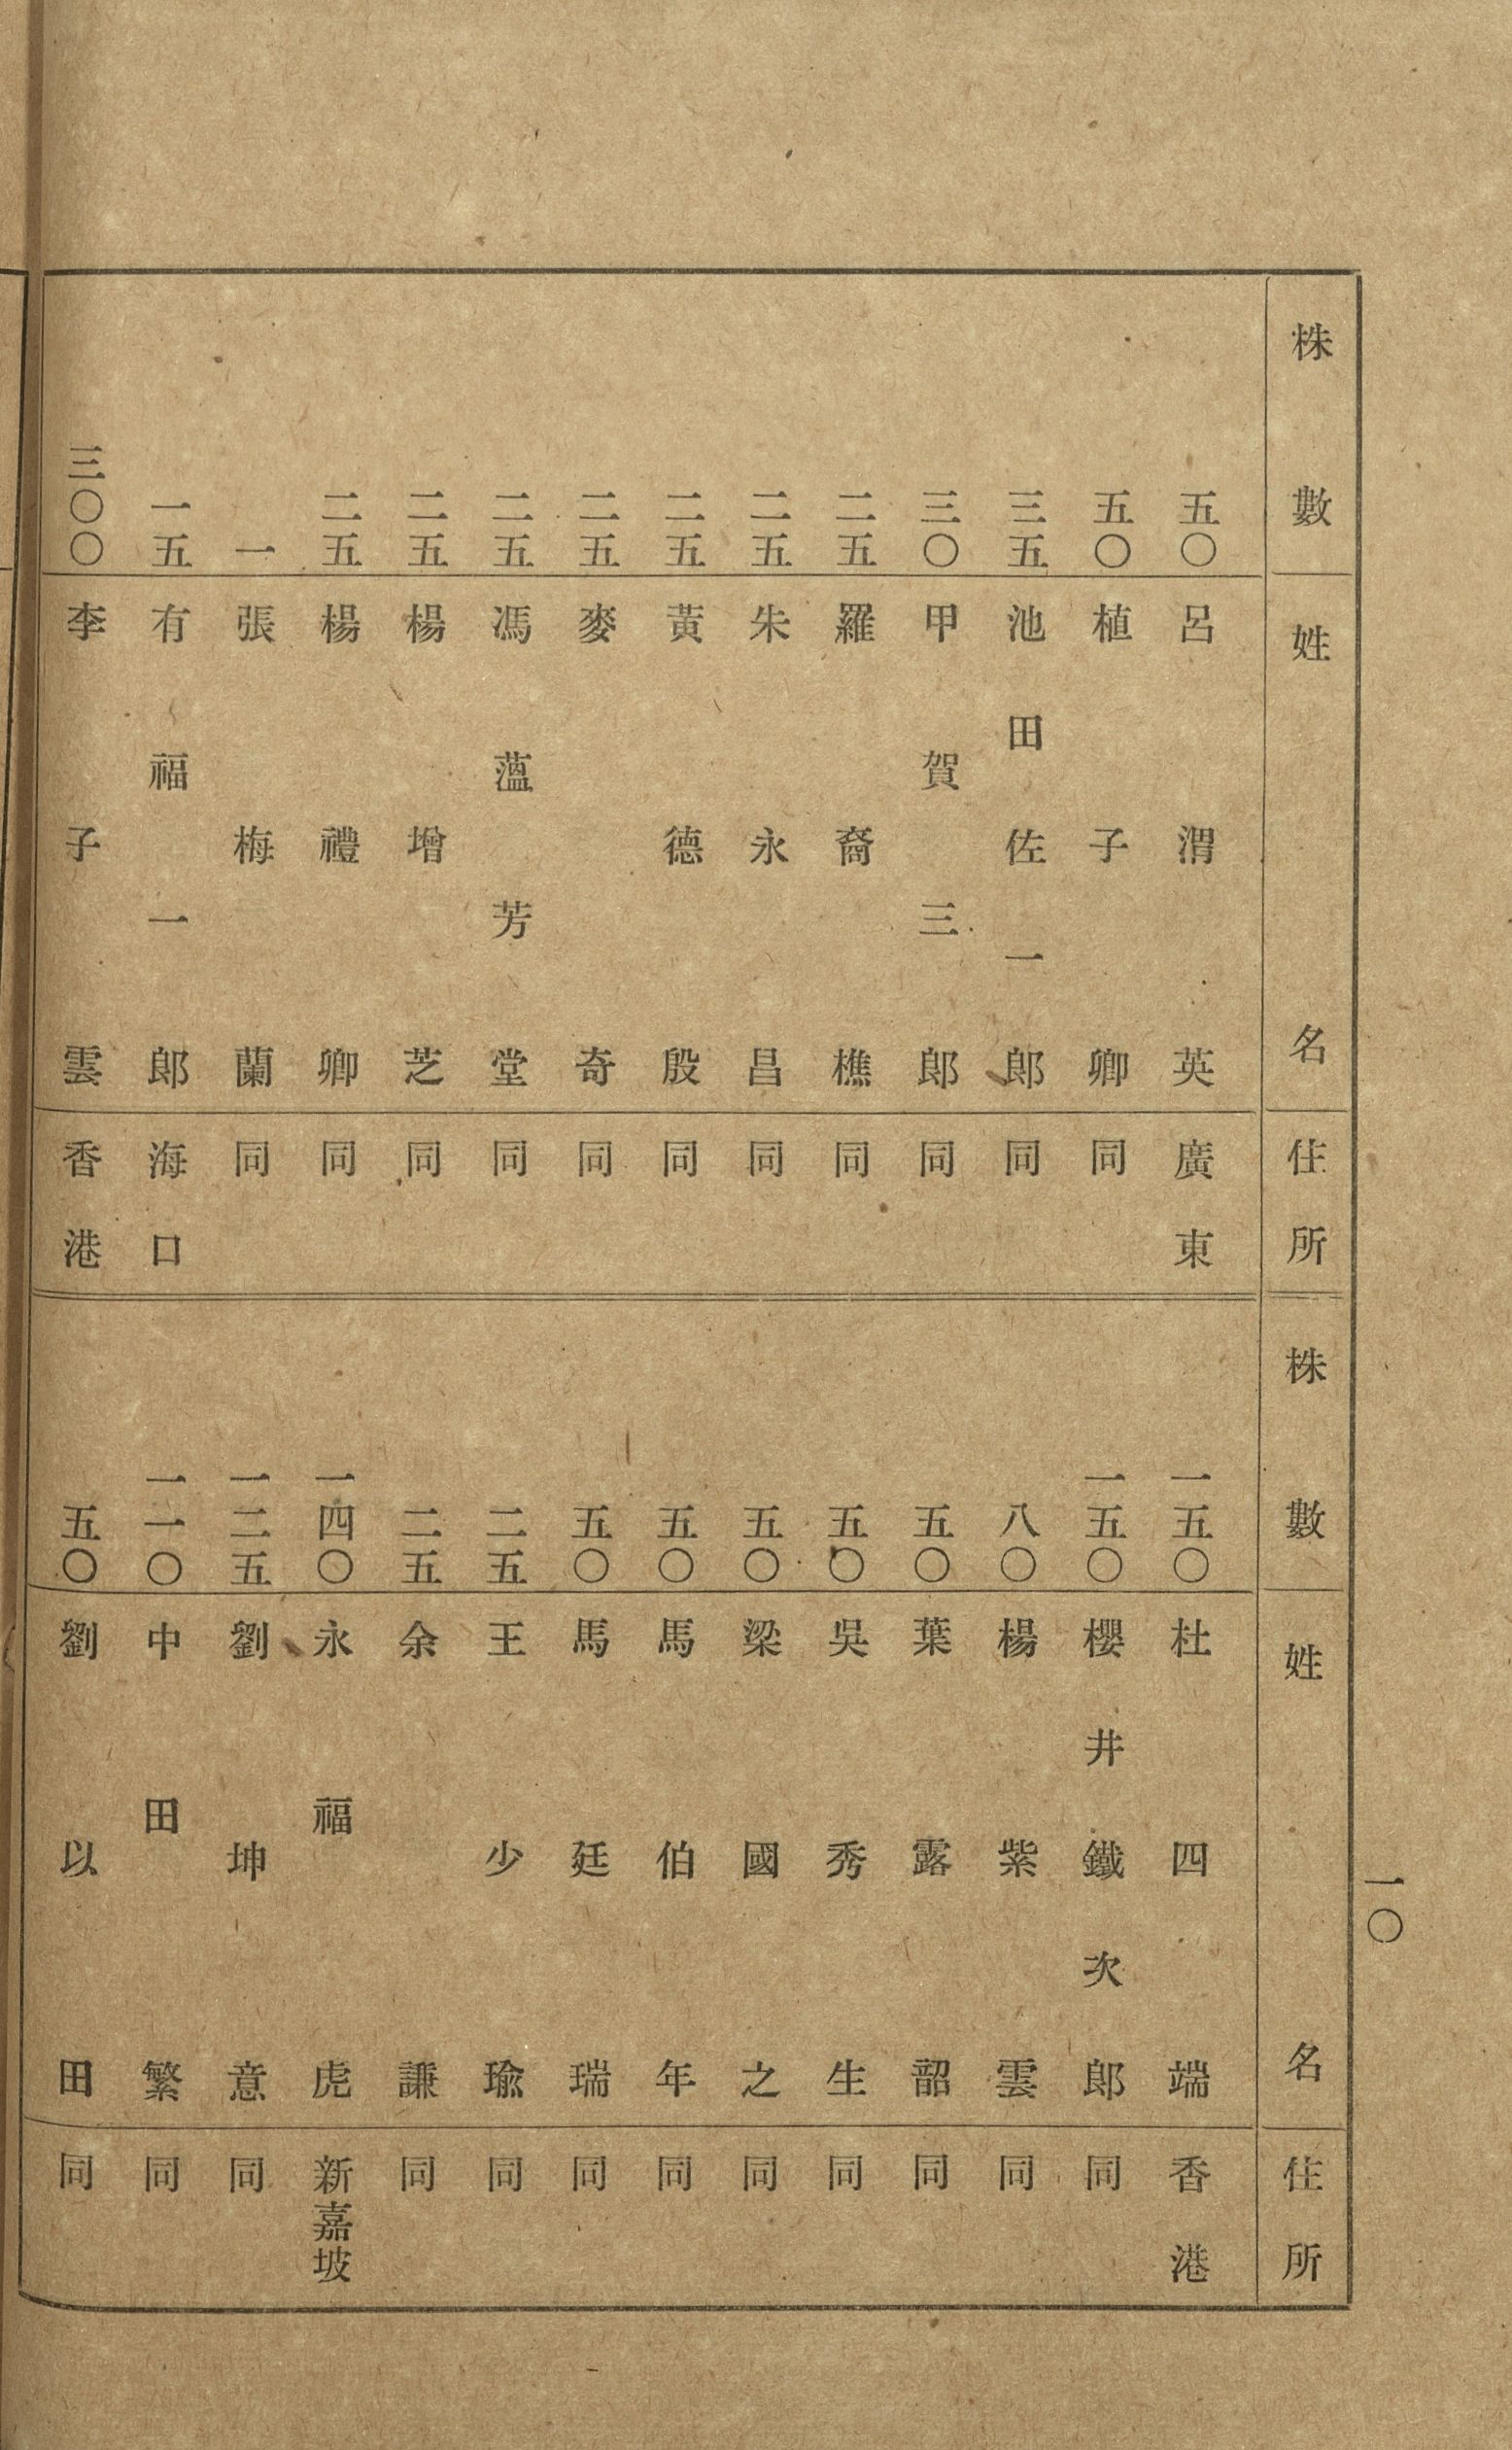 株數 姓名 住所
五〇 呂渭英 廣東
五〇 植子卿 同
三五 池田佐一郎 同
三〇 甲賀三郎 同
二五 羅裔樵 同
二五 朱永昌 同
二五 黃德殷 同
二五 麥奇 同
二五 馮薀芳堂 同
二五 楊增芝 同
二五 楊禮卿 同
一 張梅蘭 同
一五 有福一郎 海口
三〇〇 李子雲 香港
株數 姓名 住所
一五〇 杜四端 香港
一五〇 櫻井鐵次郎 同
八〇 楊紫雲 同
五〇 葉露韶 同
五〇 吳秀生 同
五〇 梁國之 同
五〇 馬伯年 同
五〇 馬廷瑞 同
二五 王少瑜 同
二五 余謙 同
一四〇 永福虎 新嘉坡
一二五 劉坤意 同
一一〇 中田繁 同
五〇 劉以田 同
一〇